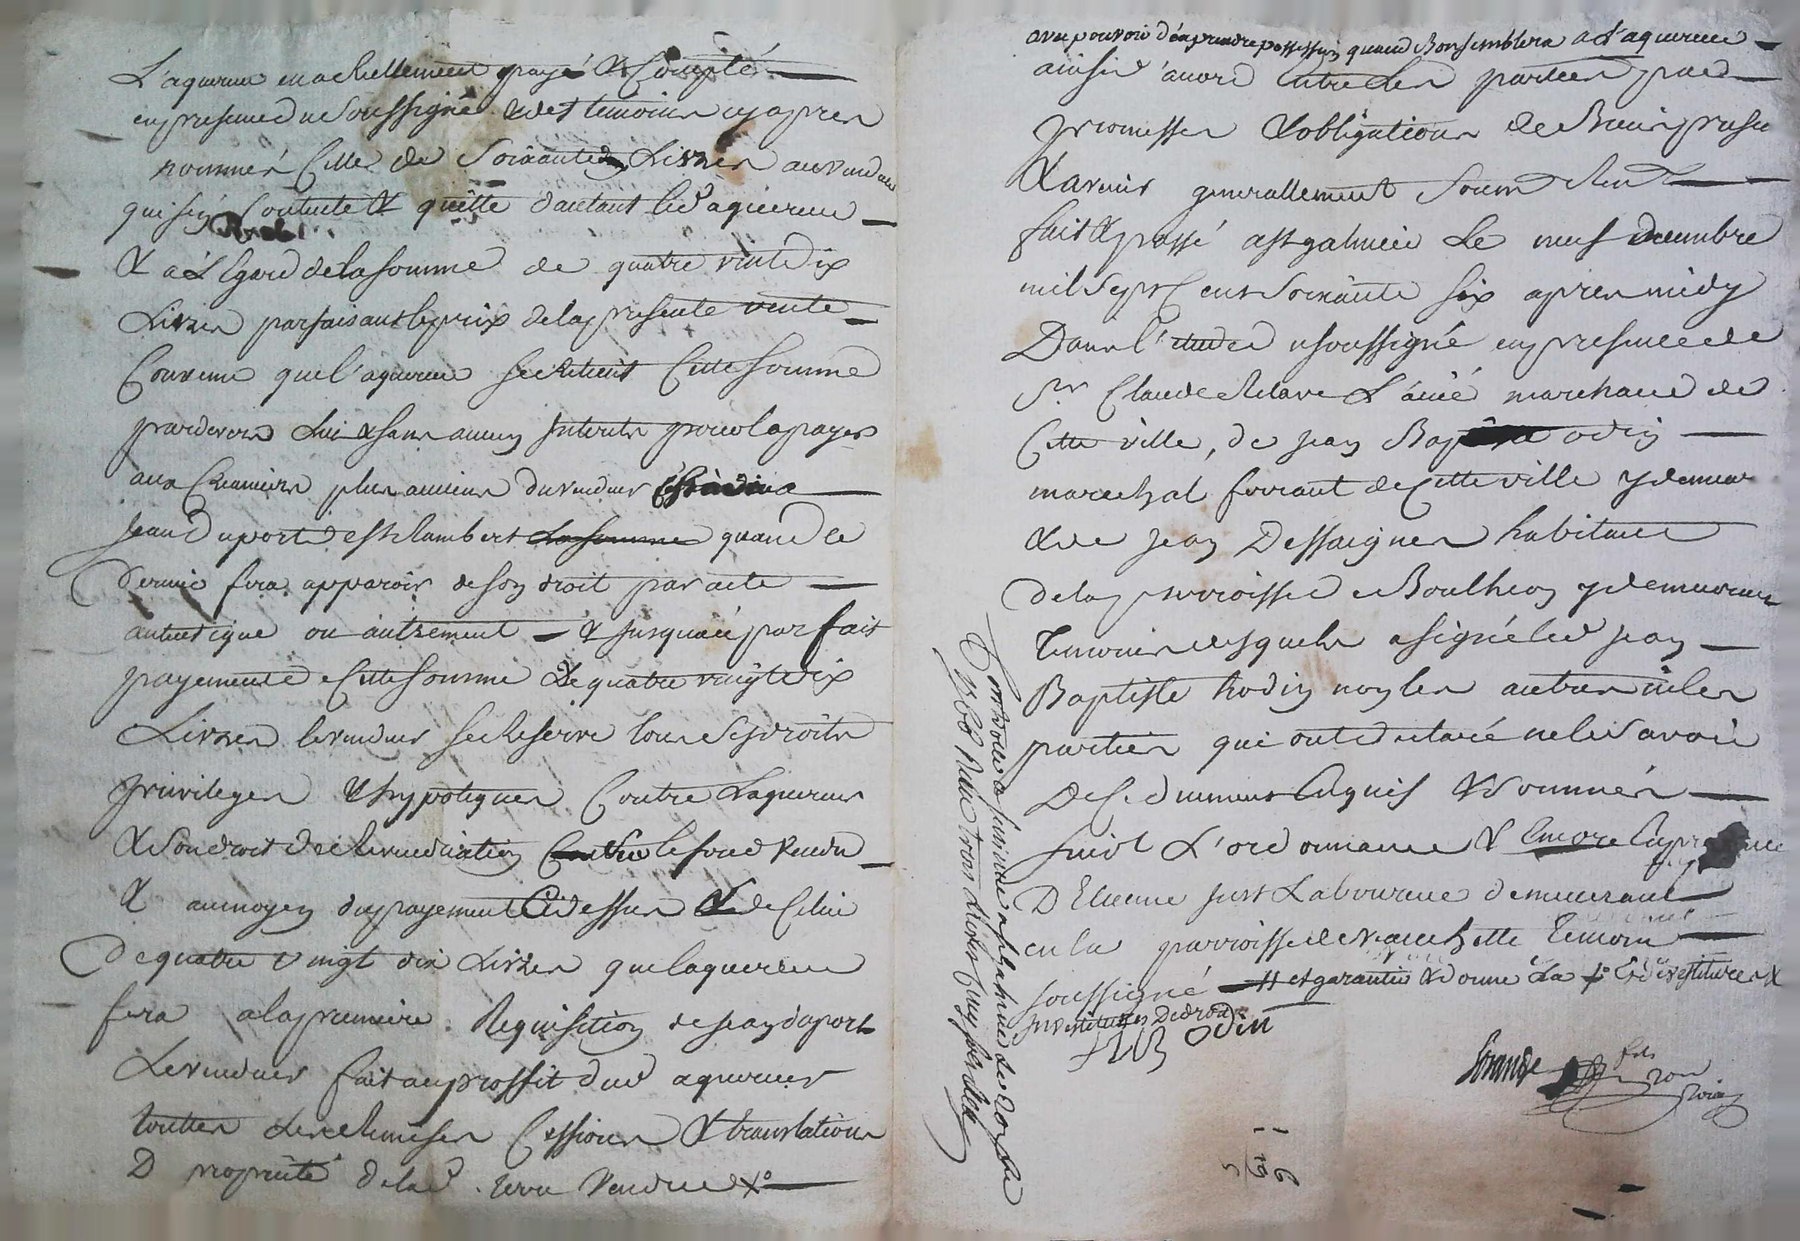 L'aquereur en a reellement payé & Compté
en presence du soussigné & des temoins cy apres
nommés Celle de Soixante Livres au vendeur
qui s'en Contente & quitte d'autant led aquereur
& a l'Egard de la somme de quatre vint dix
Livres parfaisant le prix de la presente vente
Convenu que l'aquereur se retient Cette somme
pardevers Lui & sans aucun Interets pour la payer
aux Creanciers plus anciens du vendeur
Jean Duport de St Rambert La somme quand ce
dernier fera apparoir de son droit par acte
autentique ou autrement & Jusqu'au parfait
payement de Cette somme de quatre vingt dix
Livres le vendeur se Reserve tous ses droits
privileges & hypoteques Contre Laquereur
& son droit de Revendication Contre le fond Vendu
& au moyen du payement Cy dessus & de Celui
de quatre vingt dix Livres que laquereur
fera a la premiere Requisition de Jean duport
Le vendeur fait au proffit dud aquereur
touttes Les demises Cessions & translations
De proprieté de lad. terre Vendue
avec pouvoir d'en prendre possession quand Bon semblera a l'aquereur
ainsi d'accord Entre Les parties par
promesses & obligations de Biens presents
& avenir generallement soumis
fait & passé a St galmier Le neuf decembre
mil Sept Cent Soixante six apres midy
Dans l'etude du soussigné en presence de
Sr Claude Relave L'ainé marchand de
Cette ville, de Jean Bap odin
marechal ferrant de Cette ville y demeurant
& de Jean Dessaignes habitant
de la parroisse de Boutheon y demeurant
temoins desquels a signé led Jean
Baptiste hodin non les autres ni les
parties qui ont declaré ne le savoir
De Ce duement Enquis & sommés
suivt L'ordonnance & Encore En presence
D'Etienne Just Laboureur demeurant
en la parroisse de temoin
soussigné et garantie & donne La
Investitures De droit
J B Odin
fils
Controllé a St galmier